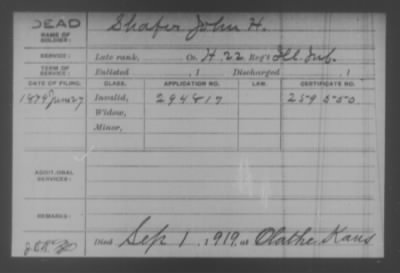 DEAD
NAME OF SOLDIER: Shafer John H.
SERVICE: Late rank, Co. H. 22 Reg't Ill. Inf.
TERM OF SERVICE: Enlisted , 1 Discharged , 1
DATE OF FILING. CLASS. APPLICATION NO. LAW. CERTIFICATE NO.
1879 June 27 Invalid, 294817 259 550
Widow,
Minor,
ADDITIONAL SERVICES:
REMARKS:
Died Sep 1, 1919, at Olathe Kans